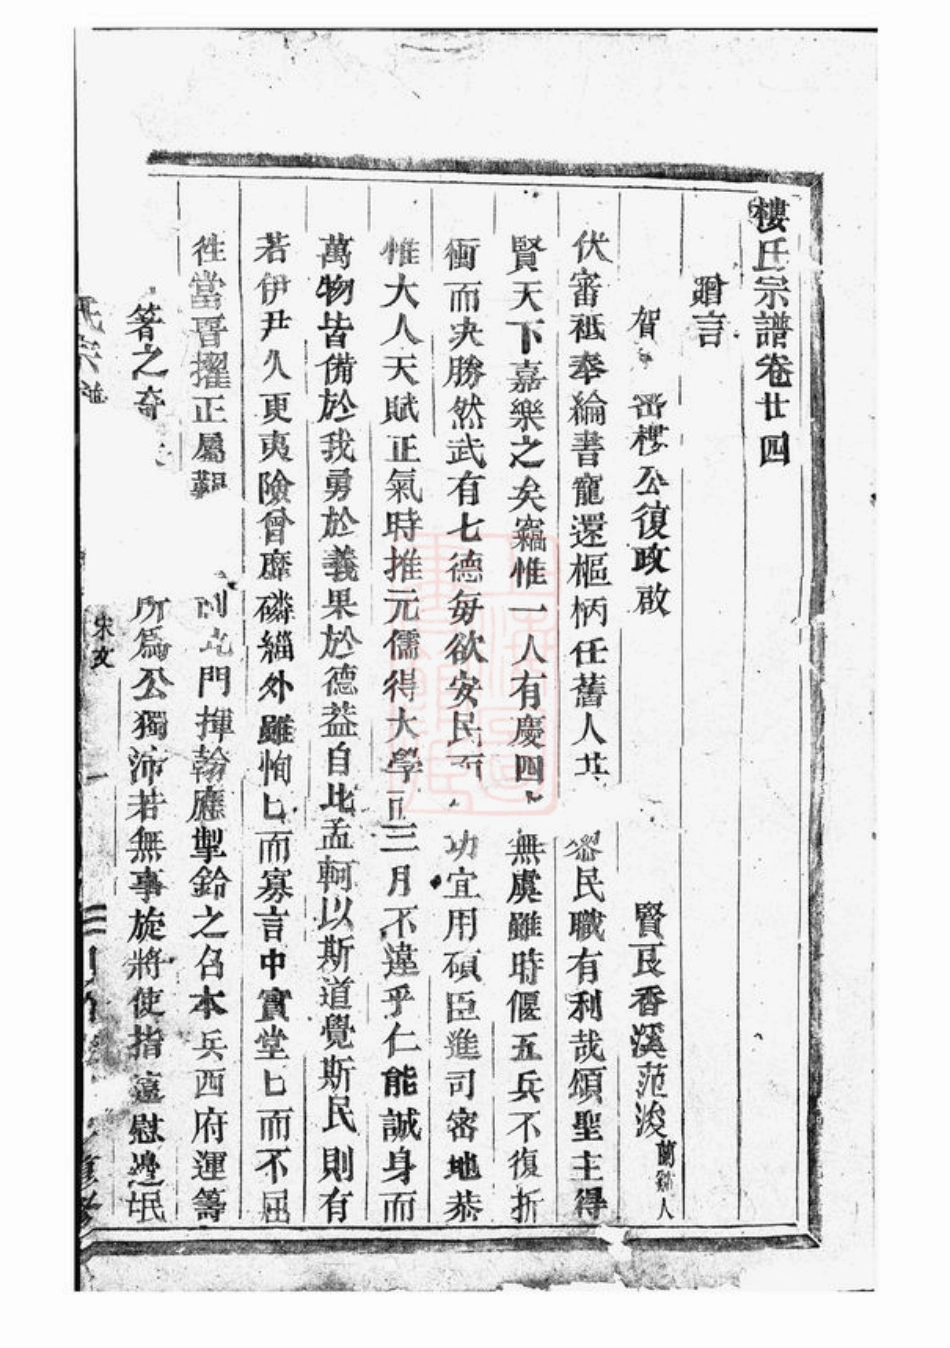 樓氏宗譜卷廿四
廻言
賀 樞密樓公復政啟 賢良香溪范浚蘭谿人
伏審祇奉綸書寵還樞柄任舊人共 黎民職有利哉頌聖主得
賢天下嘉樂之矣竊惟一人有慶四 無虞雖時偃五兵不復折
衝而决勝然武有七德每欲安民而 功宜用碩臣進司密地恭
惟大人天賦正氣時推元儒得大學 三月不違乎仁能誠身而
萬物皆備於我勇於義果於德益自比孟軻以斯道覺斯民則有
若伊尹久更夷險曾靡磷緇外雖恂匕而寡言中實堂匕而不屈
徃當晋擢正屬艱 北門揮翰應掣鈴之召本兵西府運籌
箸之奇 所爲公獨沛若無事旋將使指遠慰邊氓
氏宗譜 宋文 一